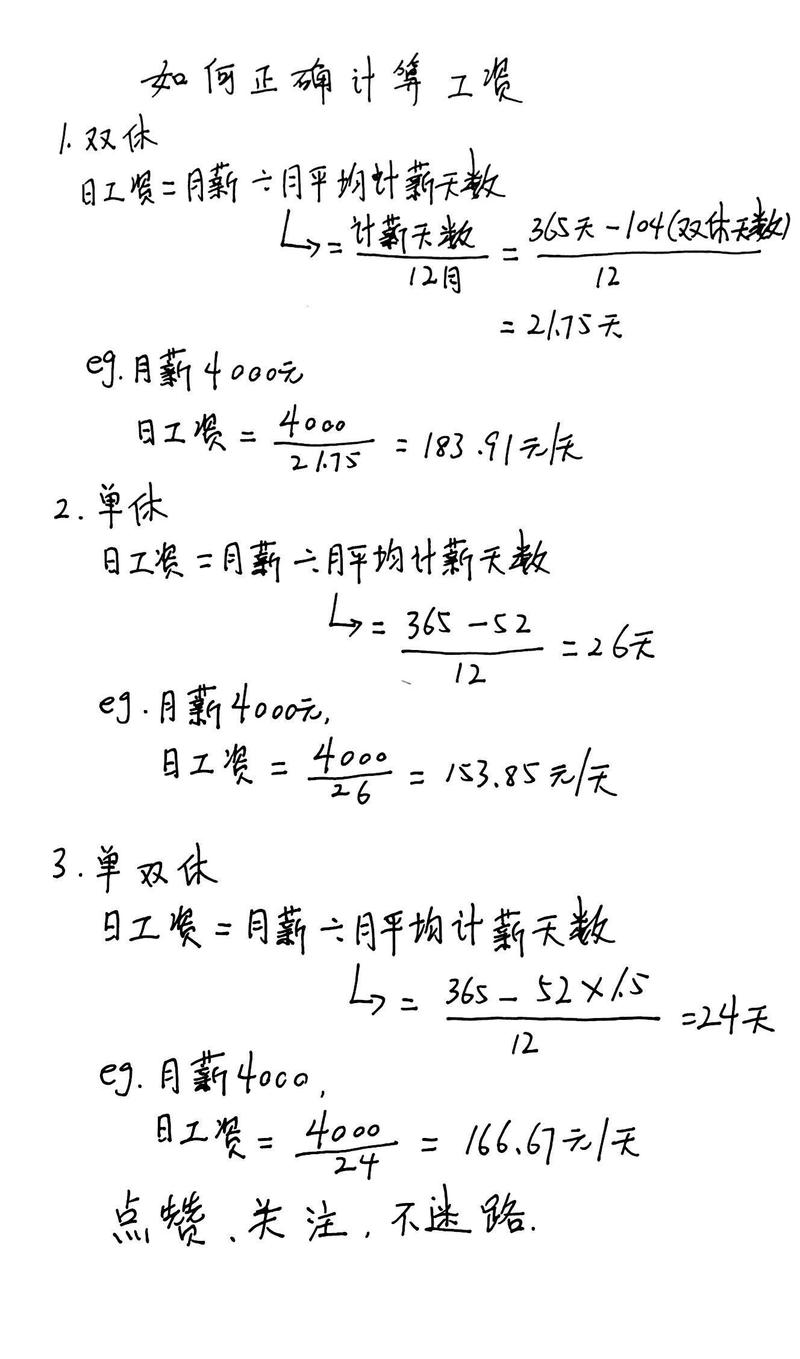 如何正确计算工资
1. 双休
日工资=月薪÷月平均计薪天数
↳= 计薪天数/12月 = 365天-104(双休天数)/12
= 21.75天
eg. 月薪4000元
日工资 = 4000/21.75 = 183.91元/天
2. 单休
日工资=月薪÷月平均计薪天数
↳= 365-52/12 = 26天
eg. 月薪4000元,
日工资 = 4000/26 = 153.85元/天
3. 单双休
日工资=月薪÷月平均计薪天数
↳= 365-52×1.5/12 =24天
eg. 月薪4000,
日工资= 4000/24 = 166.67元/天
点赞、关注,不迷路.